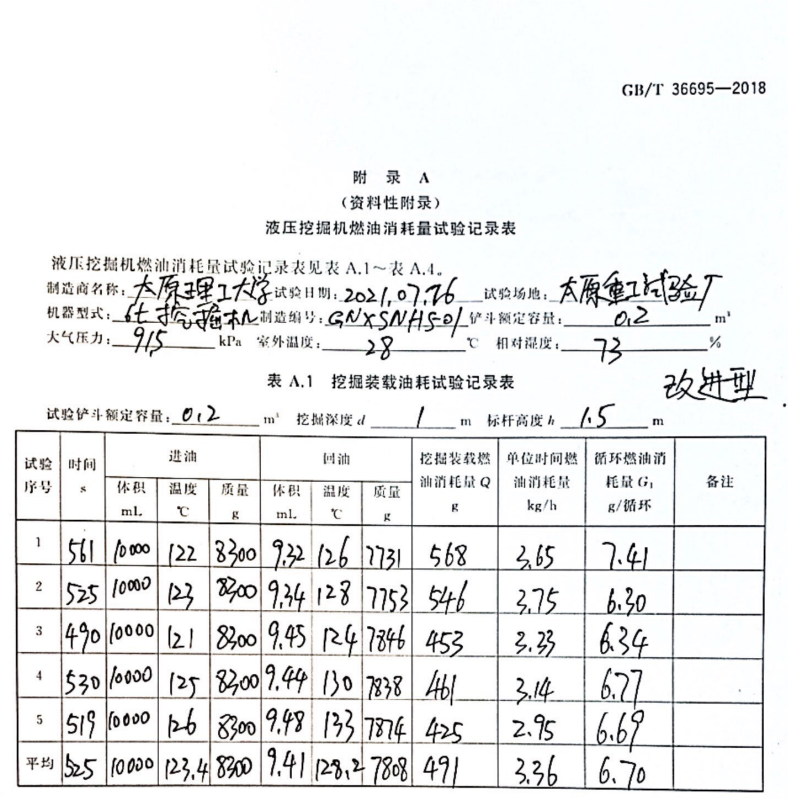 GB/T 36695—2018
附 录 A
(资料性附录)
液压挖掘机燃油消耗量试验记录表
液压挖掘机燃油消耗量试验记录表见表 A.1~表 A.4。
制造商名称: 太原理工大学 试验日期: 2021.07.26 试验场地: 太原重工试验厂
机器型式: 6t挖掘机 制造编号: GNXSNHS-01 铲斗额定容量: 0.2 m³
大气压力: 915 kPa 室外温度: 28 ℃ 相对湿度: 73 %
表 A.1 挖掘装载油耗试验记录表 改进型
试验铲斗额定容量: 0.2 m³ 挖掘深度 d 1 m 标杆高度 h 1.5 m
试验序号 时间 s 进油 回油 挖掘装载燃油消耗量 Q g 单位时间燃油消耗量 kg/h 循环燃油消耗量 G₁ g/循环 备注
体积 mL 温度 ℃ 质量 g 体积 mL 温度 ℃ 质量 g
1 561 10000 122 8300 9.32 126 7731 568 3.65 7.41
2 525 10000 123 8300 9.34 128 7753 546 3.75 6.30
3 490 10000 121 8300 9.45 124 7846 453 3.33 6.34
4 530 10000 125 8300 9.44 130 7838 461 3.14 6.77
5 519 10000 126 8300 9.48 133 7874 425 2.95 6.69
平均 525 10000 123.4 8300 9.41 128.2 7808 491 3.36 6.70